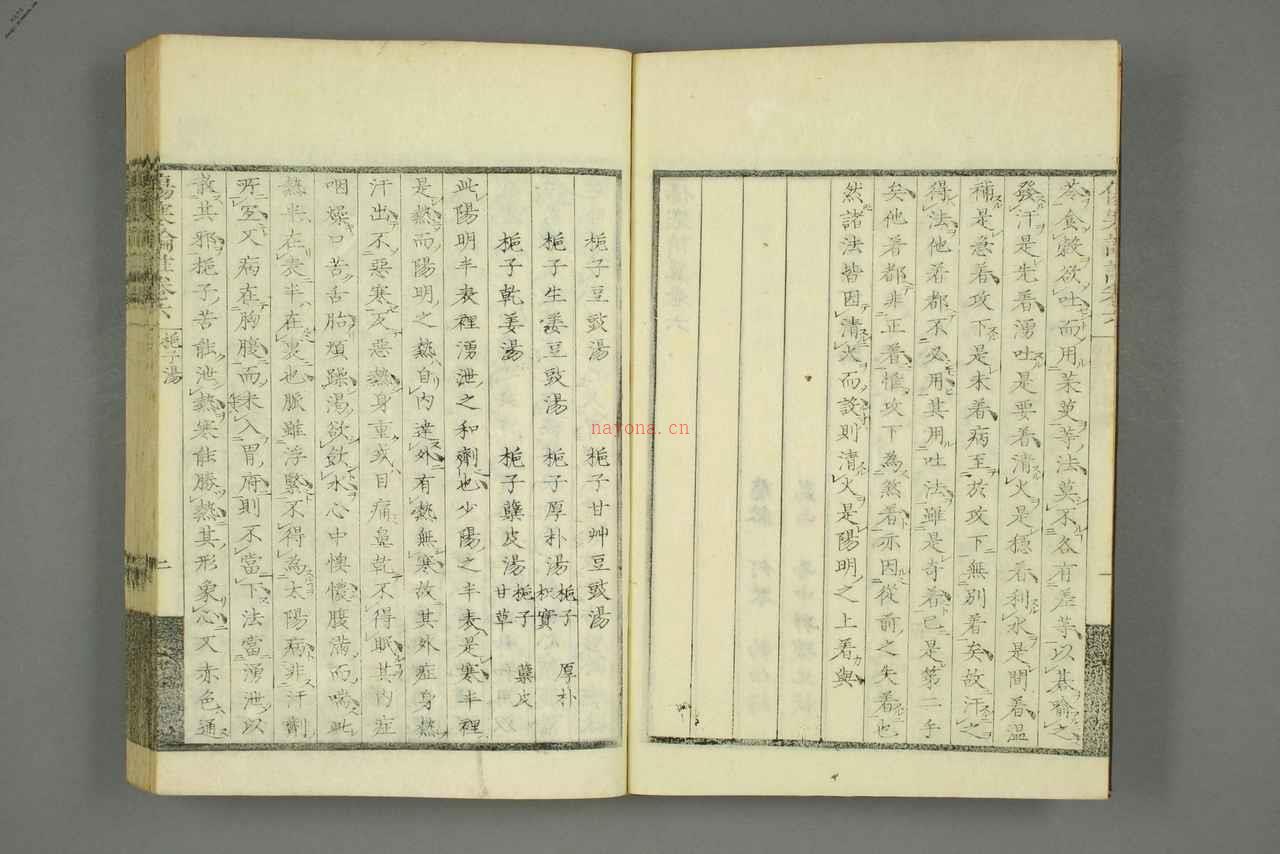 苓食穀欲吐而用茱萸等法莫不各有差等以棊喻之
發汗是先着湧吐是要着清火是穩着利水是閒着溫
補是急着攻下是末着病至於攻下無別着矣故汗之
得法他着都不必用其用吐法雖是奇着已是第二手
矣他着都非正着惟攻下為煞着亦因從前之失着也
然諸法皆因清火而設則清火是陽明之上着與
梔子豆豉湯 梔子甘艸豆豉湯
梔子生姜豆豉湯 梔子厚朴湯 梔子 厚朴 枳實
梔子乾姜湯 梔子蘗皮湯 梔子 蘗皮 甘草
此陽明半表裡湧泄之和劑也少陽之半表是寒半裡
是熱而陽明之熱自內達外有熱無寒故其外症身熱
汗出不惡寒反惡熱身重或目痛鼻乾不得眠其內症
咽燥口苦舌胎煩躁渴欲飲水心中懊憹腹滿而喘此
熱半在表半在裏也脈雖浮緊不得為太陽病非汗劑
所宜又病在胸腹而未入胃府則不當下法當湧泄以
散其邪梔子苦能泄熱寒能勝熱其形象心又赤色通
梔子湯
二
nayona.cn